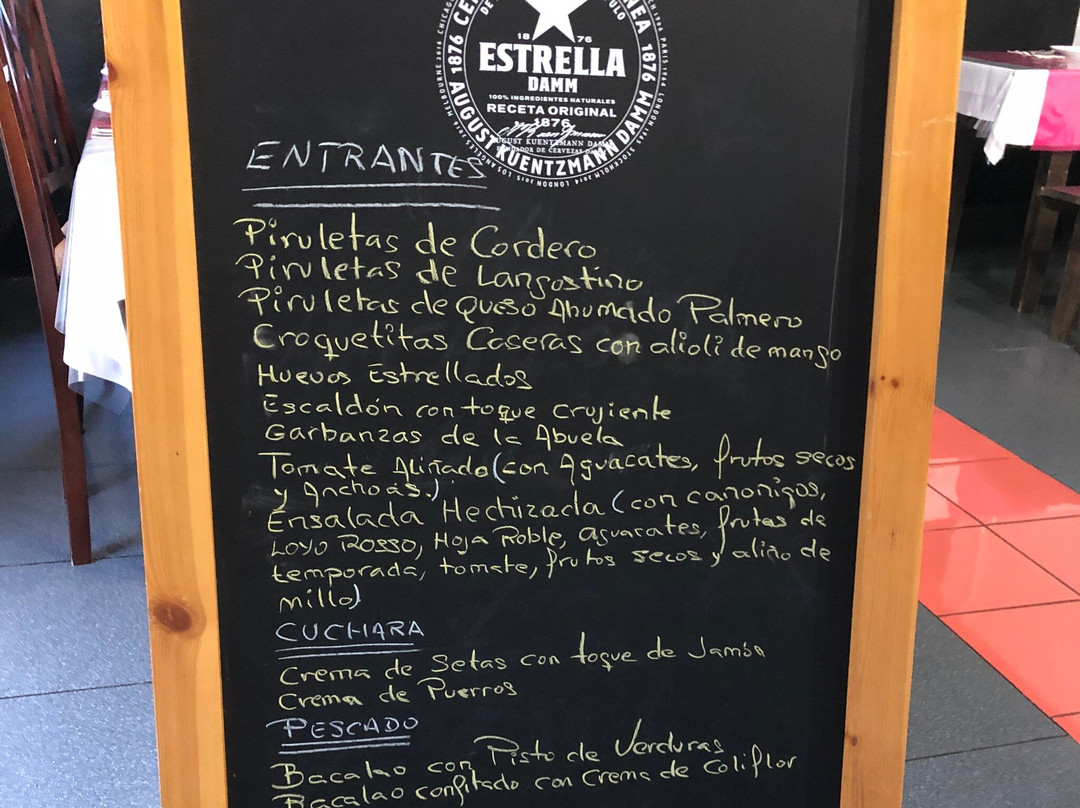 18 76
ESTRELLA
DAMM
100% INGREDIENTES NATURALES
RECETA ORIGINAL
1876
AUGUST KUENTZMANN DAMM
ENTRANTES
Piruletas de Cordero
Piruletas de Langostino
Piruletas de Queso Ahumado Palmero
Croquetitas Caseras con alioli de mango
Huevos Estrellados
Escaldón con toque crujiente
Garbanzas de la Abuela
Tomate Aliñado (con Aguacates, frutos secos
y Anchoas.)
Ensalada Hechizada (con canonigos,
Loyo Rosso, Hoja Roble, aguacates, frutas de
temporada, tomate, frutos secos y aliño de
millo)
CUCHARA
Crema de Setas con toque de Jamón
Crema de Puerros
PESCADO
Bacalao con Pisto de Verduras
Bacalao confitado con Crema de Coliflor